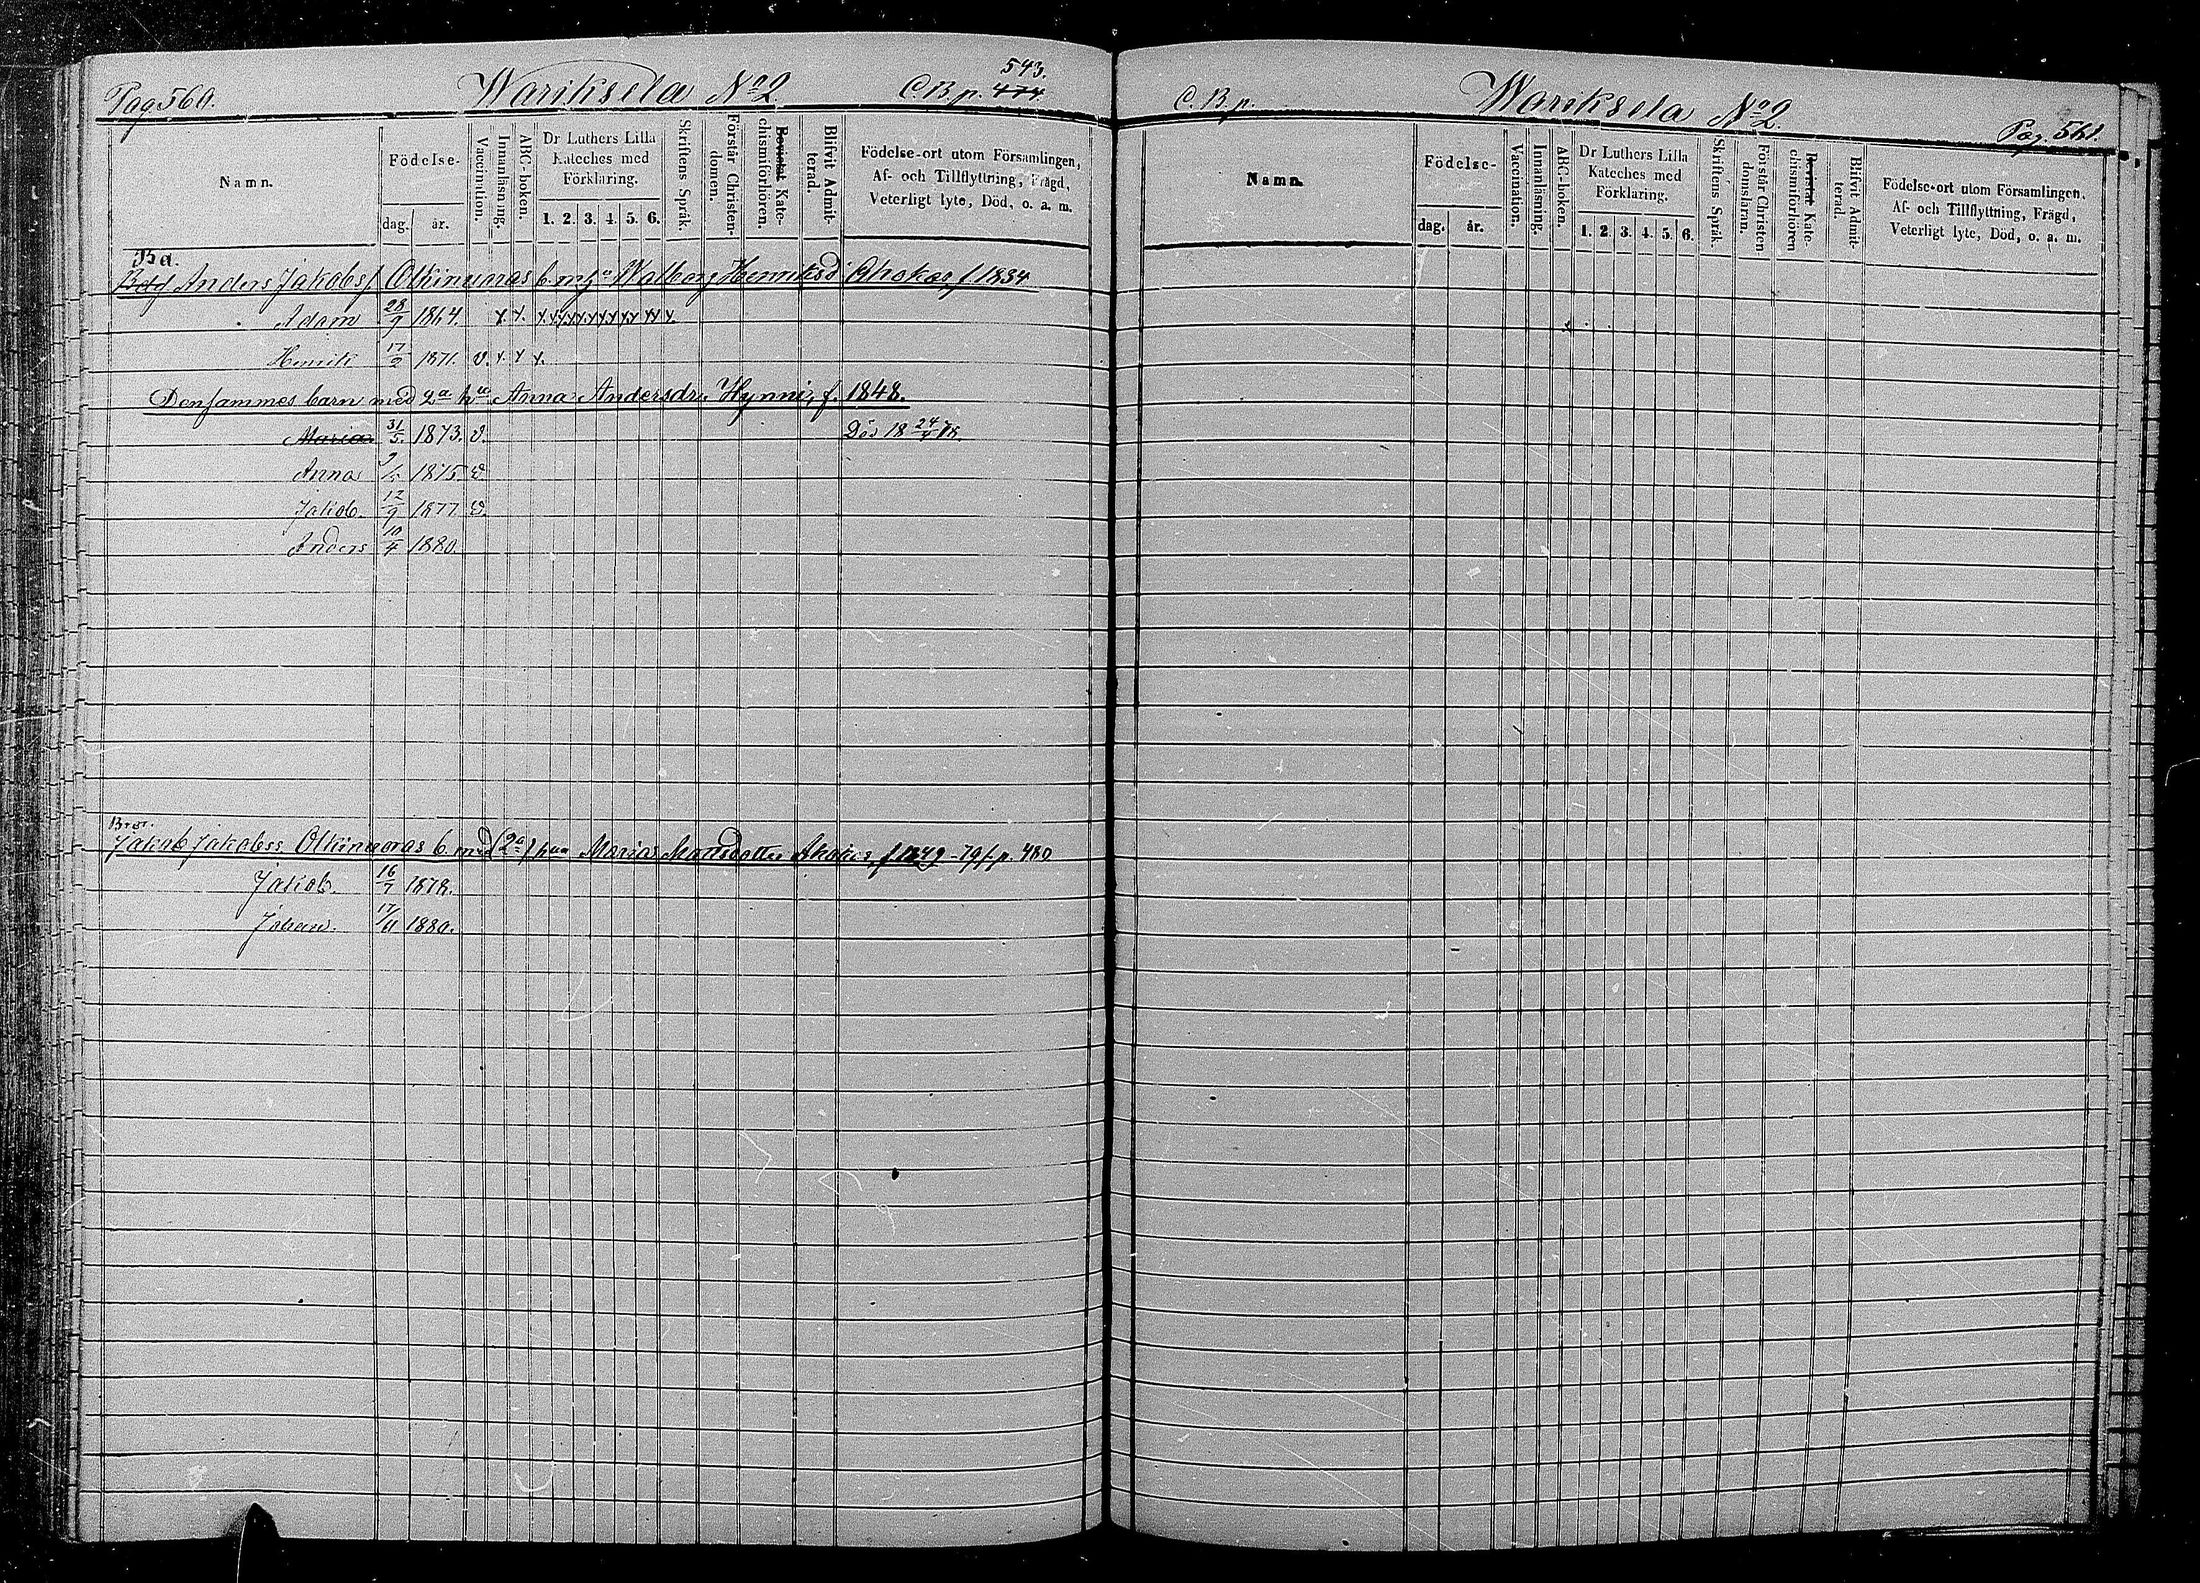 Pag 560. Wariksela No 2 C. B. p. 474. 543.
Namn. Födelse- dag. år. Vaccination. Innanläsning. ABC-boken. Dr Luthers Lilla Kateches med Förklaring. 1. 2. 3. 4. 5. 6. Skriftens Språk. Förstår Christendomen. Bevistat Katechismiförhören. Blifvit Admitterad. Födelse-ort utom Församlingen, Af- och Tillflyttning, Frägd, Veterligt lyte, Död, o. a. m.
Bd.
Anders Jakobss Olkinuoras b. m. Walborg Henriksd Ahokas, f 1834
Adam 28/9 1864.
Henrik 17/2 1871. v.
Densammes barn med 2a hu Anna Andersdr. Hynni, f. 1848.
Maria 31/5 1873. v. Död 18 24/4 78
Anna 1875 v.
Jakob. 12/9 1877 v.
Anders 10/4 1880
Bror.
Jakob Jakobss Olkinuoras b. med (2a) hua Maria Matsdotter Ahokas, f 1849 - 79 f. p. 480
Jakob. 16/7 1878.
Johan. 17/11 1880.
C. B. p. Wariksela No 2. Pag. 561.
Namn. Födelse- dag. år. Vaccination. Innanläsning. ABC-boken. Dr Luthers Lilla Kateches med Förklaring. 1. 2. 3. 4. 5. 6. Skriftens Språk. Förstår Christendomsläran. Bevistat Katechismiförhören Blifvit Admitterad. Födelse-ort utom Församlingen, Af- och Tillflyttning, Frägd, Veterligt lyte, Död, o. a. m.